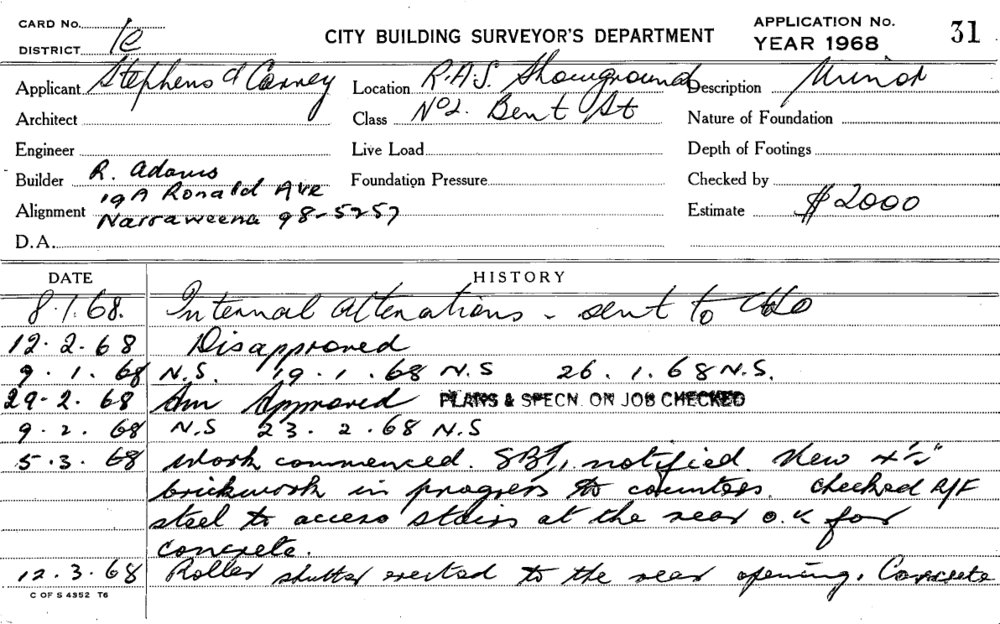 CARD No.
DISTRICT 1c
CITY BUILDING SURVEYOR'S DEPARTMENT
APPLICATION No. 31
YEAR 1968
Applicant Stephens & Carney Location R.A.S. Showground Description Minor
Architect Class No 2. Bent St Nature of Foundation
Engineer Live Load Depth of Footings
Builder R. Adams Foundation Pressure Checked by
19A Ronald Ave
Alignment Narraweena 98-5257 Estimate $2000
D.A.
DATE HISTORY
8.1.68. Internal alterations - sent to CHO
12.2.68 Disapproved
9.1.68 N.S. 19.1.68 N.S 26.1.68 N.S.
29.2.68 Am Approved PLANS & SPECN. ON JOB CHECKED
9.2.68 N.S 23.2.68 N.S
5.3.68 Work commenced. notified. New 4½"
brickwork in progress to counters. Checked R/F
steel to access stairs at the rear o.k for
concrete.
12.3.68 Roller shutter erected to the rear opening. Concrete
C OF S 4352 T6